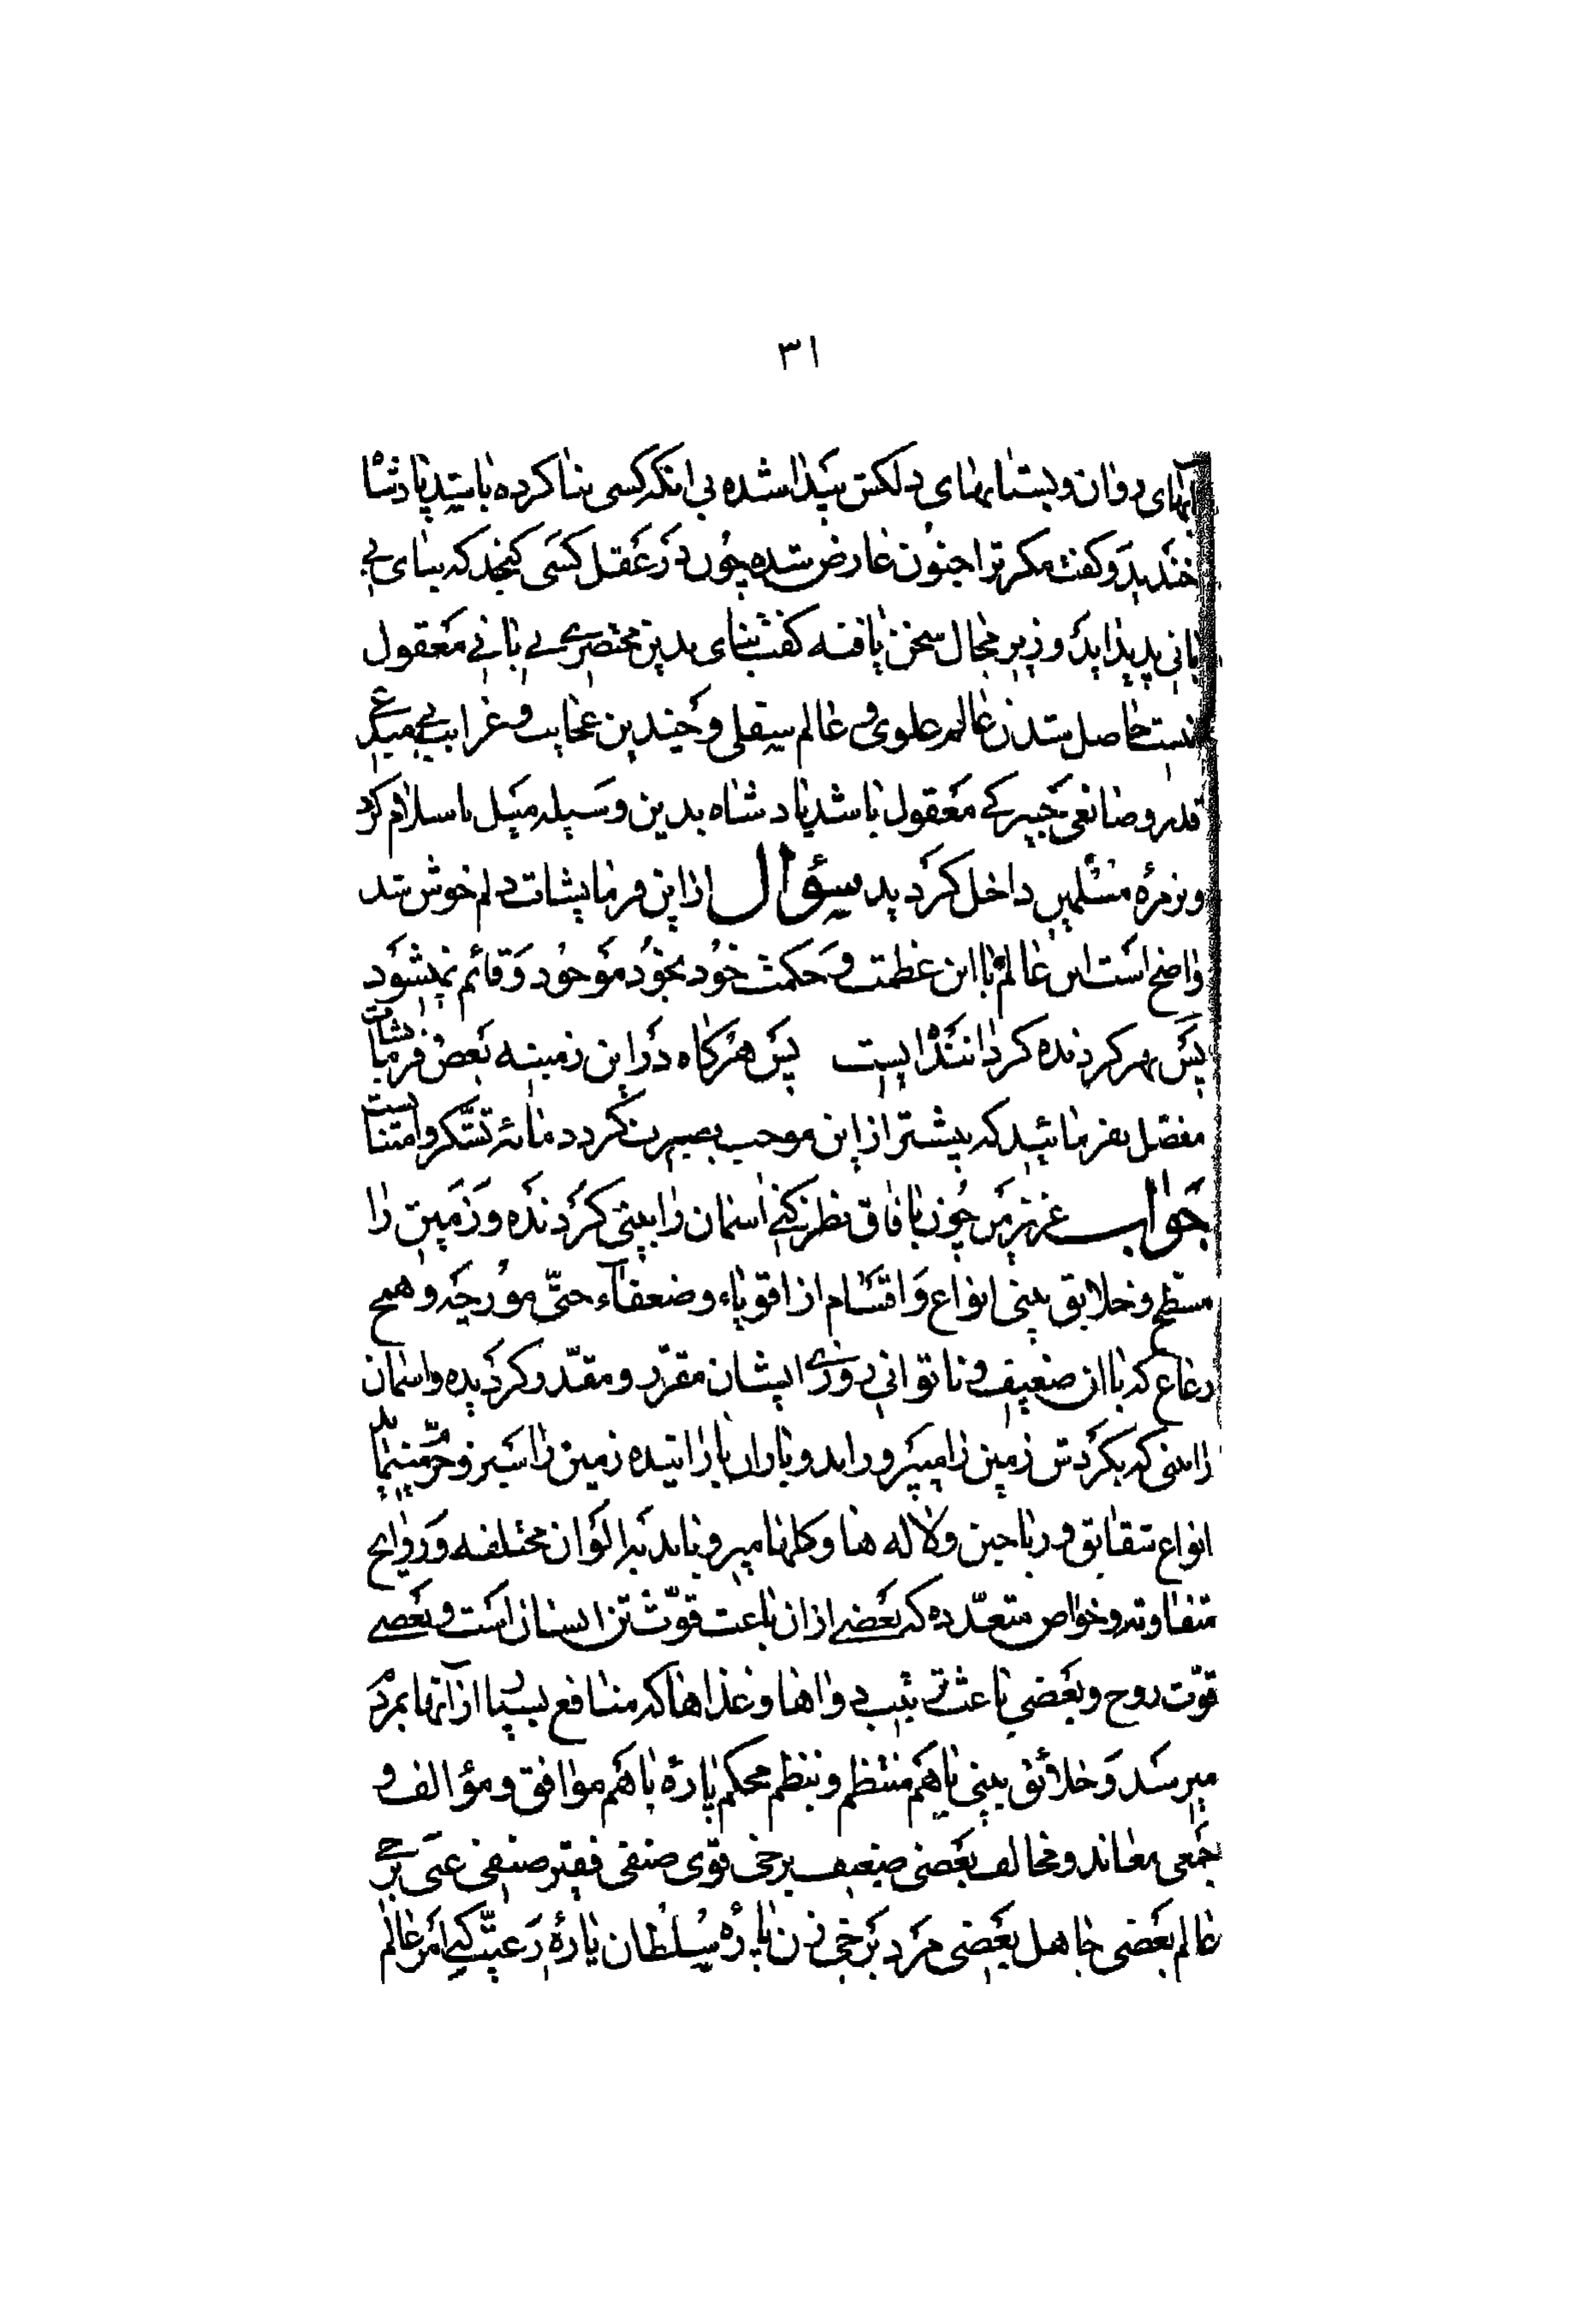 ۳۱
آبهای روان و بستانهای دلکش پیدا شده بی انکه کسی بنا کرده باشد پادشاه
خندید و گفت مگر ترا جنون عارض شده چون در عقل کسی گنجد که بنای بی
بانی پدید اید وزیر مجال سخن یافته گفت بنای بدین مختصری بی بانی معقول
نیست حاصل شدن عالم علوی و عالم سفلی و چندین عجایب و غرایب بی مبدع
قدیر و صانعی خبیر کی معقول باشد پادشاه بدین وسیله میل باسلام کرد
و بزمرهٔ مسلمین داخل گردید سؤال از این فرمایشات دلم خوش شد
واضح است این عالم با این عظمت و حکمت خود بخود موجود و قائم نمیشود
پس هر گردنده گرداننداایست پس هرگاه در این زمینه بعض فرمایشات
مفصل بفرمائید که بیشتر از این موجب بصیرت گردد مایهٔ تشکر و امتنانست
جواب عزیز من چون بافاق نظر کنی اسمان را بینی گردنده و زمین را
مسطح و خلایق بینی انواع و اقسام از اقویاء و ضعفآء حتّی مورچه و همج
رعاع که با ان ضعیف و ناتوانی روزی ایشان مقرّر و مقدّر گردیده و اسمان
را بینی که بگردش زمین را میپروراند و باران بارانیده زمین را سبز و خرّم مینماید
انواع شقایق و ریاحین و لاله ها و گلها میرویاند بدالوان مختلفه و روایح
متفاوته و خواص متعدّده که بعضی از ان باعث قوّت تن انسان است و بعضی
قوّت روح و بعضی باعث ترتیب دواها و غذاها که منافع بسیار از آنها بمردم
میرسد و خلائق بینی با هم منتظم و بنظم محکم پارهٔ با هم موافق و مؤالف و
جمعی معاند و مخالف بعضی ضعیف برخی قوی صنفی فقیر صنفی غنی برخی
عالم بعضی جاهل بعضی مرد برخی زن پارهٔ سلطان پارهٔ رعیّت که امر عالم